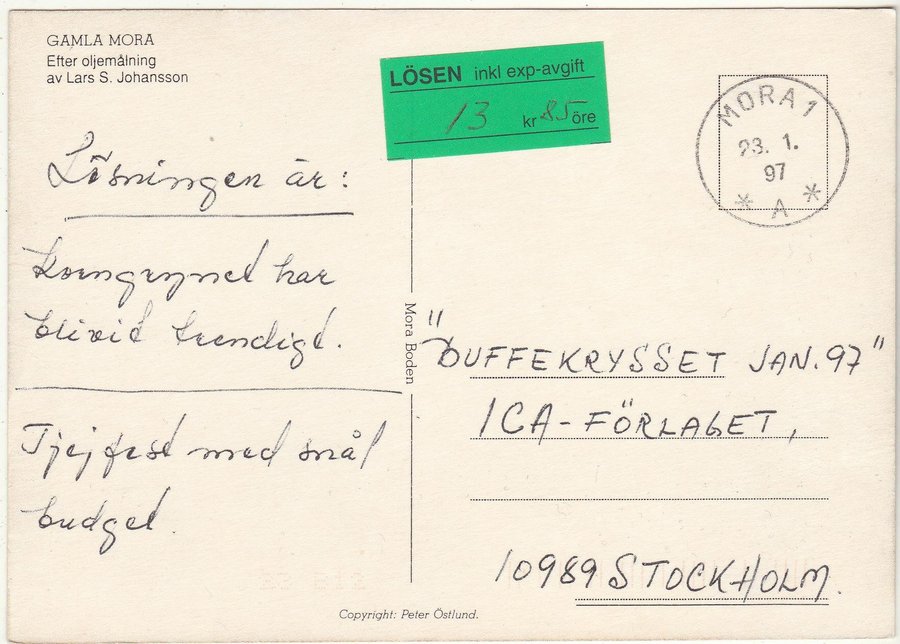 GAMLA MORA
Efter oljemålning
av Lars S. Johansson
LÖSEN inkl exp-avgift
13 kr 85 öre
MORA 1
23. 1.
97
* A *
Lösningen är:
Korngrynet har
blivit trendigt.
Tjejfest med snål
budget
Mora Boden
"DUFFEKRYSSET JAN. 97"
ICA-FÖRLAGET,
10989 STOCKHOLM.
Copyright: Peter Östlund.